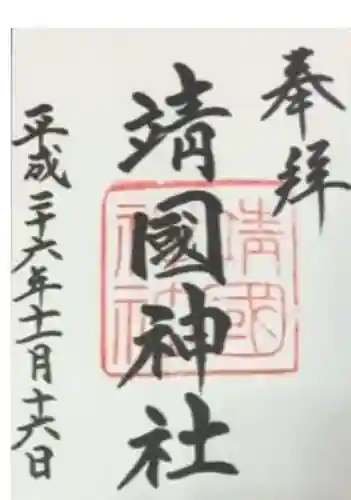 奉拝
靖國神社
靖國神社
平成二十六年十一月十六日